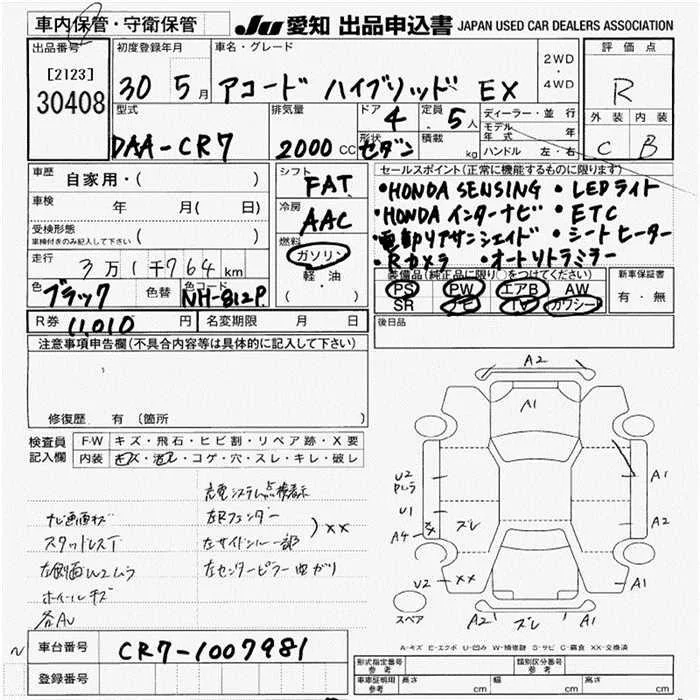 車内保管・守衛保管
JU 愛知 出品申込書 JAPAN USED CAR DEALERS ASSOCIATION
出品番号
[2123]
30408
初度登録年月
30 5月
車名・グレード
アコード ハイブリッド EX
2WD
・
4WD
評価点
R
外装 内装
C B
型式
DAA-CR7
排気量
2000 CC
ドア
4
形状
セダン
定員
5人
積載
kg
ディーラー・並行
モデル年式 年
ハンドル 左・右
車歴
自家用・( )
車検
年 月( 日)
受検形態
車検付きのみ記入して下さい
・( )
走行
3万1千764km
色
ブラック
色替
色コード
NH-812P
シフト
FAT
冷房
AAC
燃料
ガソリン
軽油
( )
セールスポイント(正常に機能するものに限ります)
・HONDA SENSING ・LEDライト
・HONDA インターナビ ・ETC
・電動リアサンシェイド ・シートヒーター
・Rカメラ ・オートリトラミラー
装備品(純正品に限り○をつけてください)
PS PW エアB AW
SR ナビ TV カワシート
新車保証書
有・無
後日品
R券 11,010 円
名変期限 月 日
注意事項申告欄(不具合内容等は具体的に記入して下さい)
修復歴 有(箇所 )
検査員
記入欄
F・W キズ・飛石・ヒビ割・リペア跡・X要
内装 キズ・汚レ・コゲ・穴・スレ・キレ・破レ
充電システム点検表示
ナビ画面キズ
左Rフェンダー
スタッドレスT
左サイドシル一部
)××
左側面W2ムラ
左センターピラー曲がり
ホイールキズ
各AU
A2
A1
U2
U1
A4
××
ズレ
A1
A2
U2
××
A1
スペア
A2
ズレ
A1
A-キズ E-エクボ U-凹み W-補修跡 S-サビ C-腐食 XX-交換済
車台番号
CR7-1007981
登録番号
形式指定番号
参考
類別区分番号
参考
車庫証明用
参考
長さ cm
幅 cm
高さ cm